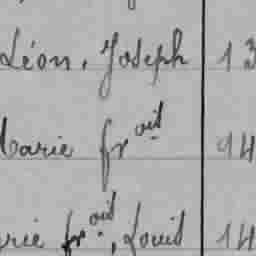 Léon, Joseph 13
Marie fr^ois 94
rie fr^ois, Louis 14